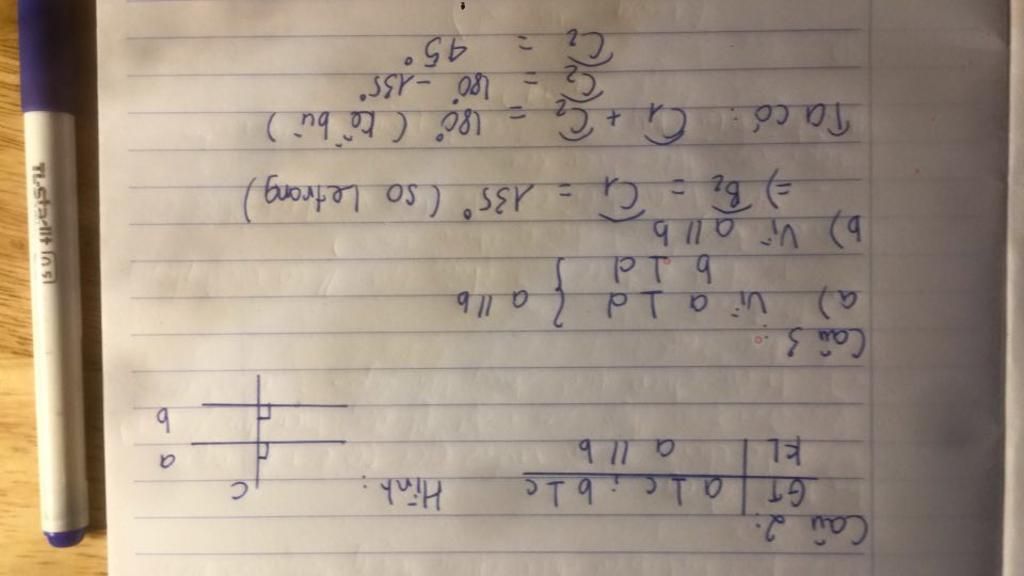 Câu 2:
GT | a ⊥ c ; b ⊥ c
KL | a // b
Hình:
c
a
b
Câu 3:
a) Vì a ⊥ d
b ⊥ d } a // b
b) Vì a // b
=> B̂₂ = Ĉ₁ = 135° (so le trong)
Ta có: Ĉ₁ + Ĉ₂ = 180° (kề bù)
Ĉ₂ = 180° - 135°
Ĉ₂ = 45°